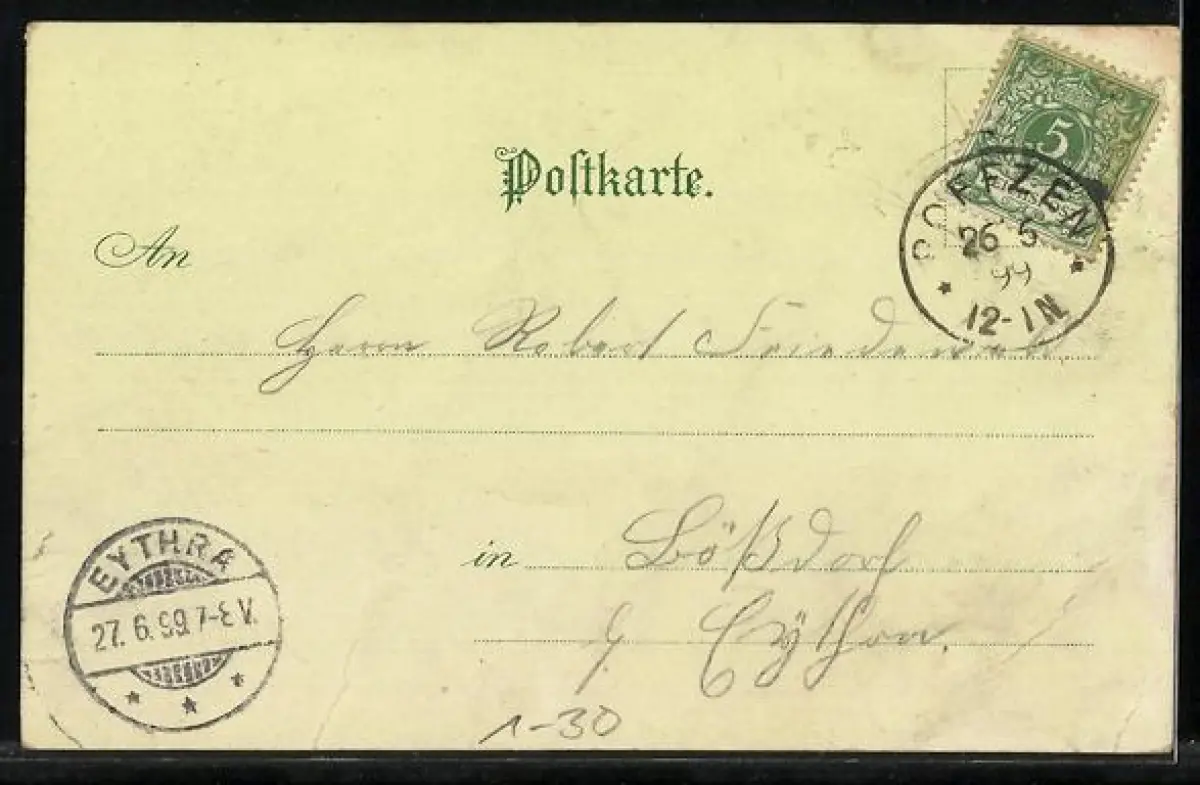 Postkarte.
5
COFFZEN
26 5
99
12-1N
An
Herrn Robert
in Bößdorf
Eythra
EYTHRA
27. 6. 99. 7-8 V.
1-30